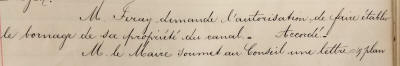 M. Feray demande l'autorisation de faire établir
le bornage de sa propriété du canal. - Accordé -
M. le Maire soumet au Conseil une lettre & plan